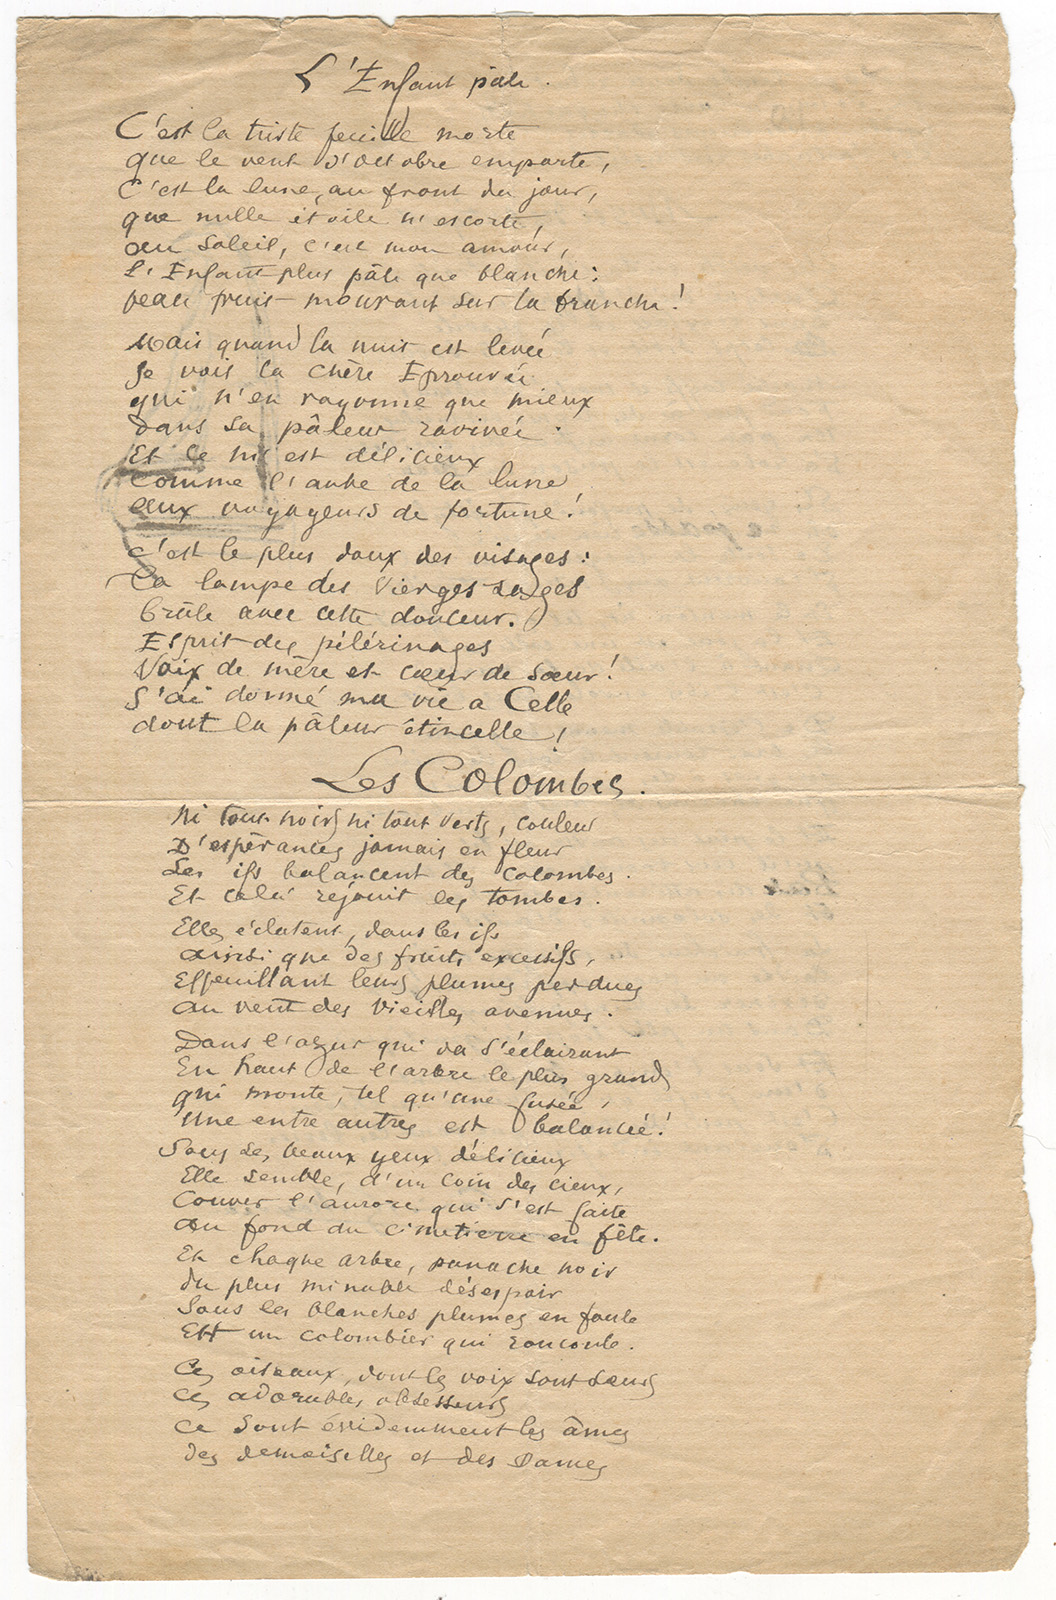 L'Enfant pâle.
C'est la triste feuille morte
que le vent d'octobre emporte,
C'est la lune, au front du jour,
que nulle étoile n'escorte,
au soleil, c'est mon amour,
L'Enfant plus pâle que blanche:
beau fruit mourant sur la branche!
Mais quand la nuit est levée
Je vois la chère Eprouvée
qui n'en rayonne que mieux
dans sa pâleur ravivée.
Et ce m'est délicieux
comme l'aube de la lune
aux voyageurs de fortune!
C'est le plus doux des visages:
La lampe des Vierges sages
brûle avec cette douceur.
Esprit des pélérinages
Voix de mère et cœur de sœur!
J'ai donné ma vie a Celle
dont la pâleur étincelle!
Les Colombes.
Ni tout noirs ni tout verts, couleur
D'espérances jamais en fleur
Les ifs balancent des colombes.
Et cela réjouit les tombes.
Elles éclatent, dans les ifs
ainsi que des fruits excessifs,
Effeuillant leurs plumes perdues
au vent des vieilles avenues.
Dans l'azur qui va s'éclairant
En haut de l'arbre le plus grand
qui monte, tel qu'une fusée,
Une entre autres est balancée!
Sous ses beaux yeux délicieux
Elle semble, d'un coin des cieux,
Couver l'aurore qui s'est faite
au fond du cimetierre en fête.
Et chaque arbre, panache noir
du plus minable désespoir
Sous les blanches plumes en foule
Est un colombier qui roucoule.
Ces oiseaux, dont les voix sont sœurs
ces adorables obsesseurs
ce sont évidemment les âmes
des demoiselles et des Dames